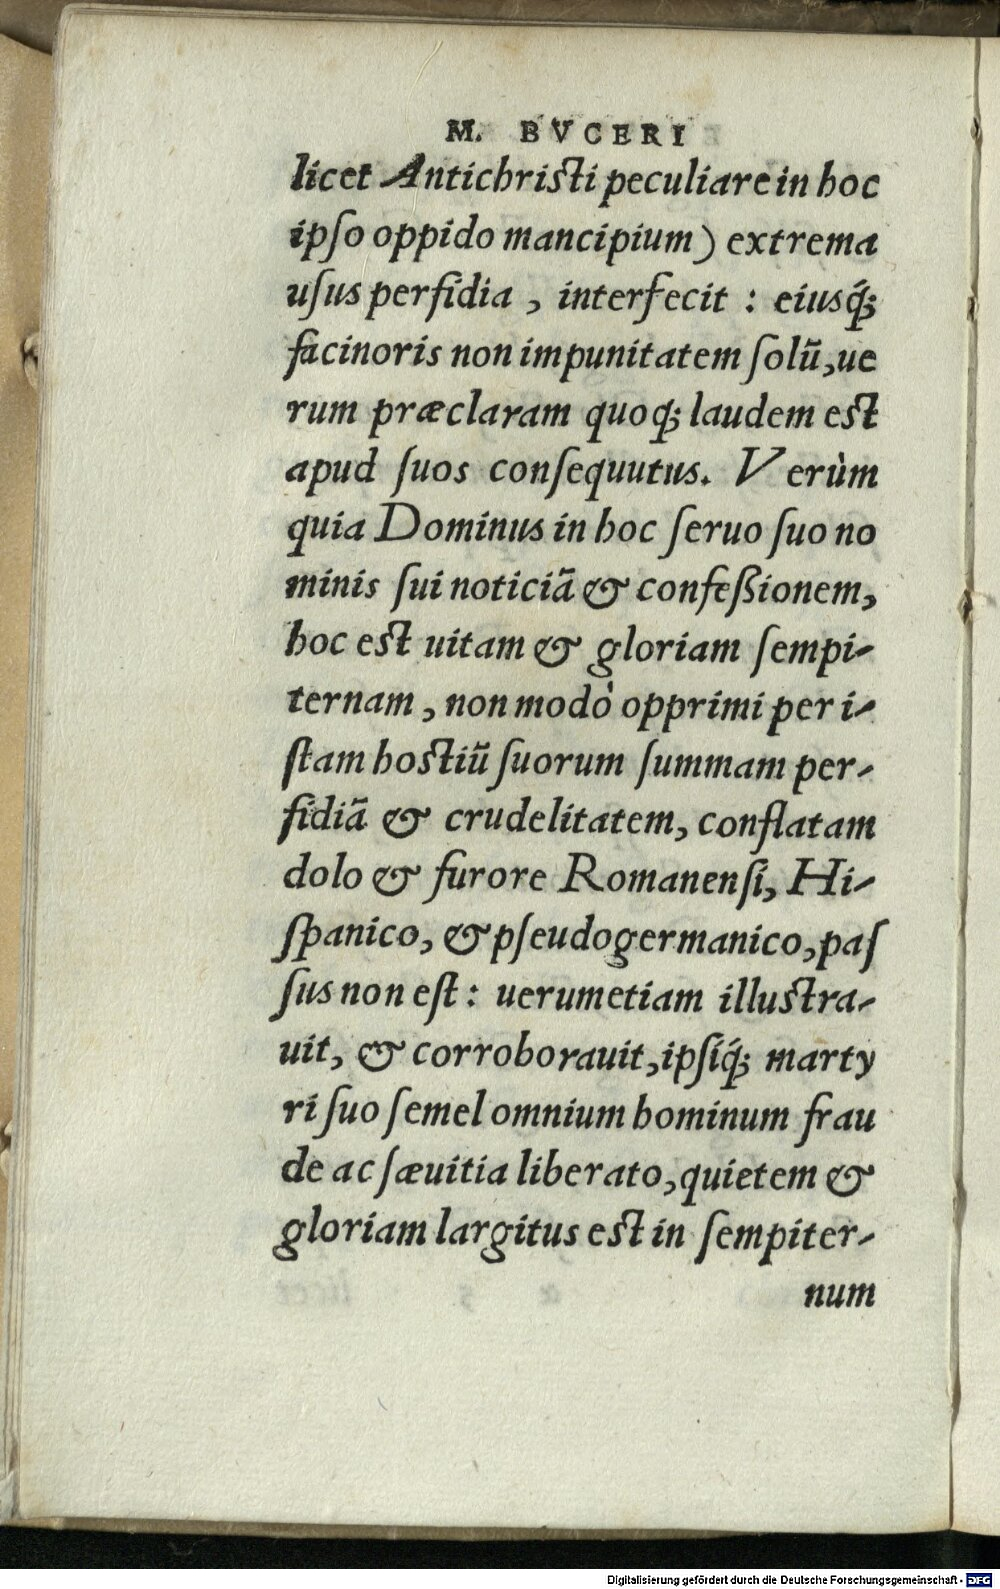 M. BVCERI
licet Antichristi peculiare in hoc
ipſo oppido mancipium) extrema
uſus perfidia, interfecit: eiusq́ꝫ
facinoris non impunitatem ſolũ, ue
rum præclaram quoqꝫ laudem est
apud ſuos conſequutus. Verùm
quia Dominus in hoc ſeruo ſuo no
minis ſui noticiã & confeßionem,
hoc est uitam & gloriam ſempi-
ternam, non modò opprimi per i-
ſtam hostiũ ſuorum ſummam per-
fidiã & crudelitatem, conflatam
dolo & furore Romanenſi, Hi-
ſpanico, & pſeudogermanico, paſ
ſus non eſt: uerumetiam illustra-
uit, & corroborauit, ipſiq́ꝫ marty
ri ſuo ſemel omnium hominum frau
de ac ſæuitia liberato, quietem &
gloriam largitus est in ſempiter-
num
Digitalisierung gefördert durch die Deutsche Forschungsgemeinschaft - DFG